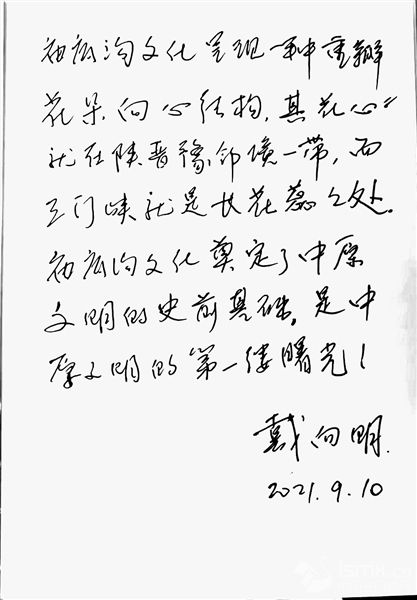 庙底沟文化呈现一种重瓣
花朵向心结构，其“花心”
就在陕晋豫邻境一带，而
三门峡就是其花蕊之处。
庙底沟文化奠定了中原
文明的史前基础，是中
原文明的第一缕曙光！
戴向明
2021.9.10